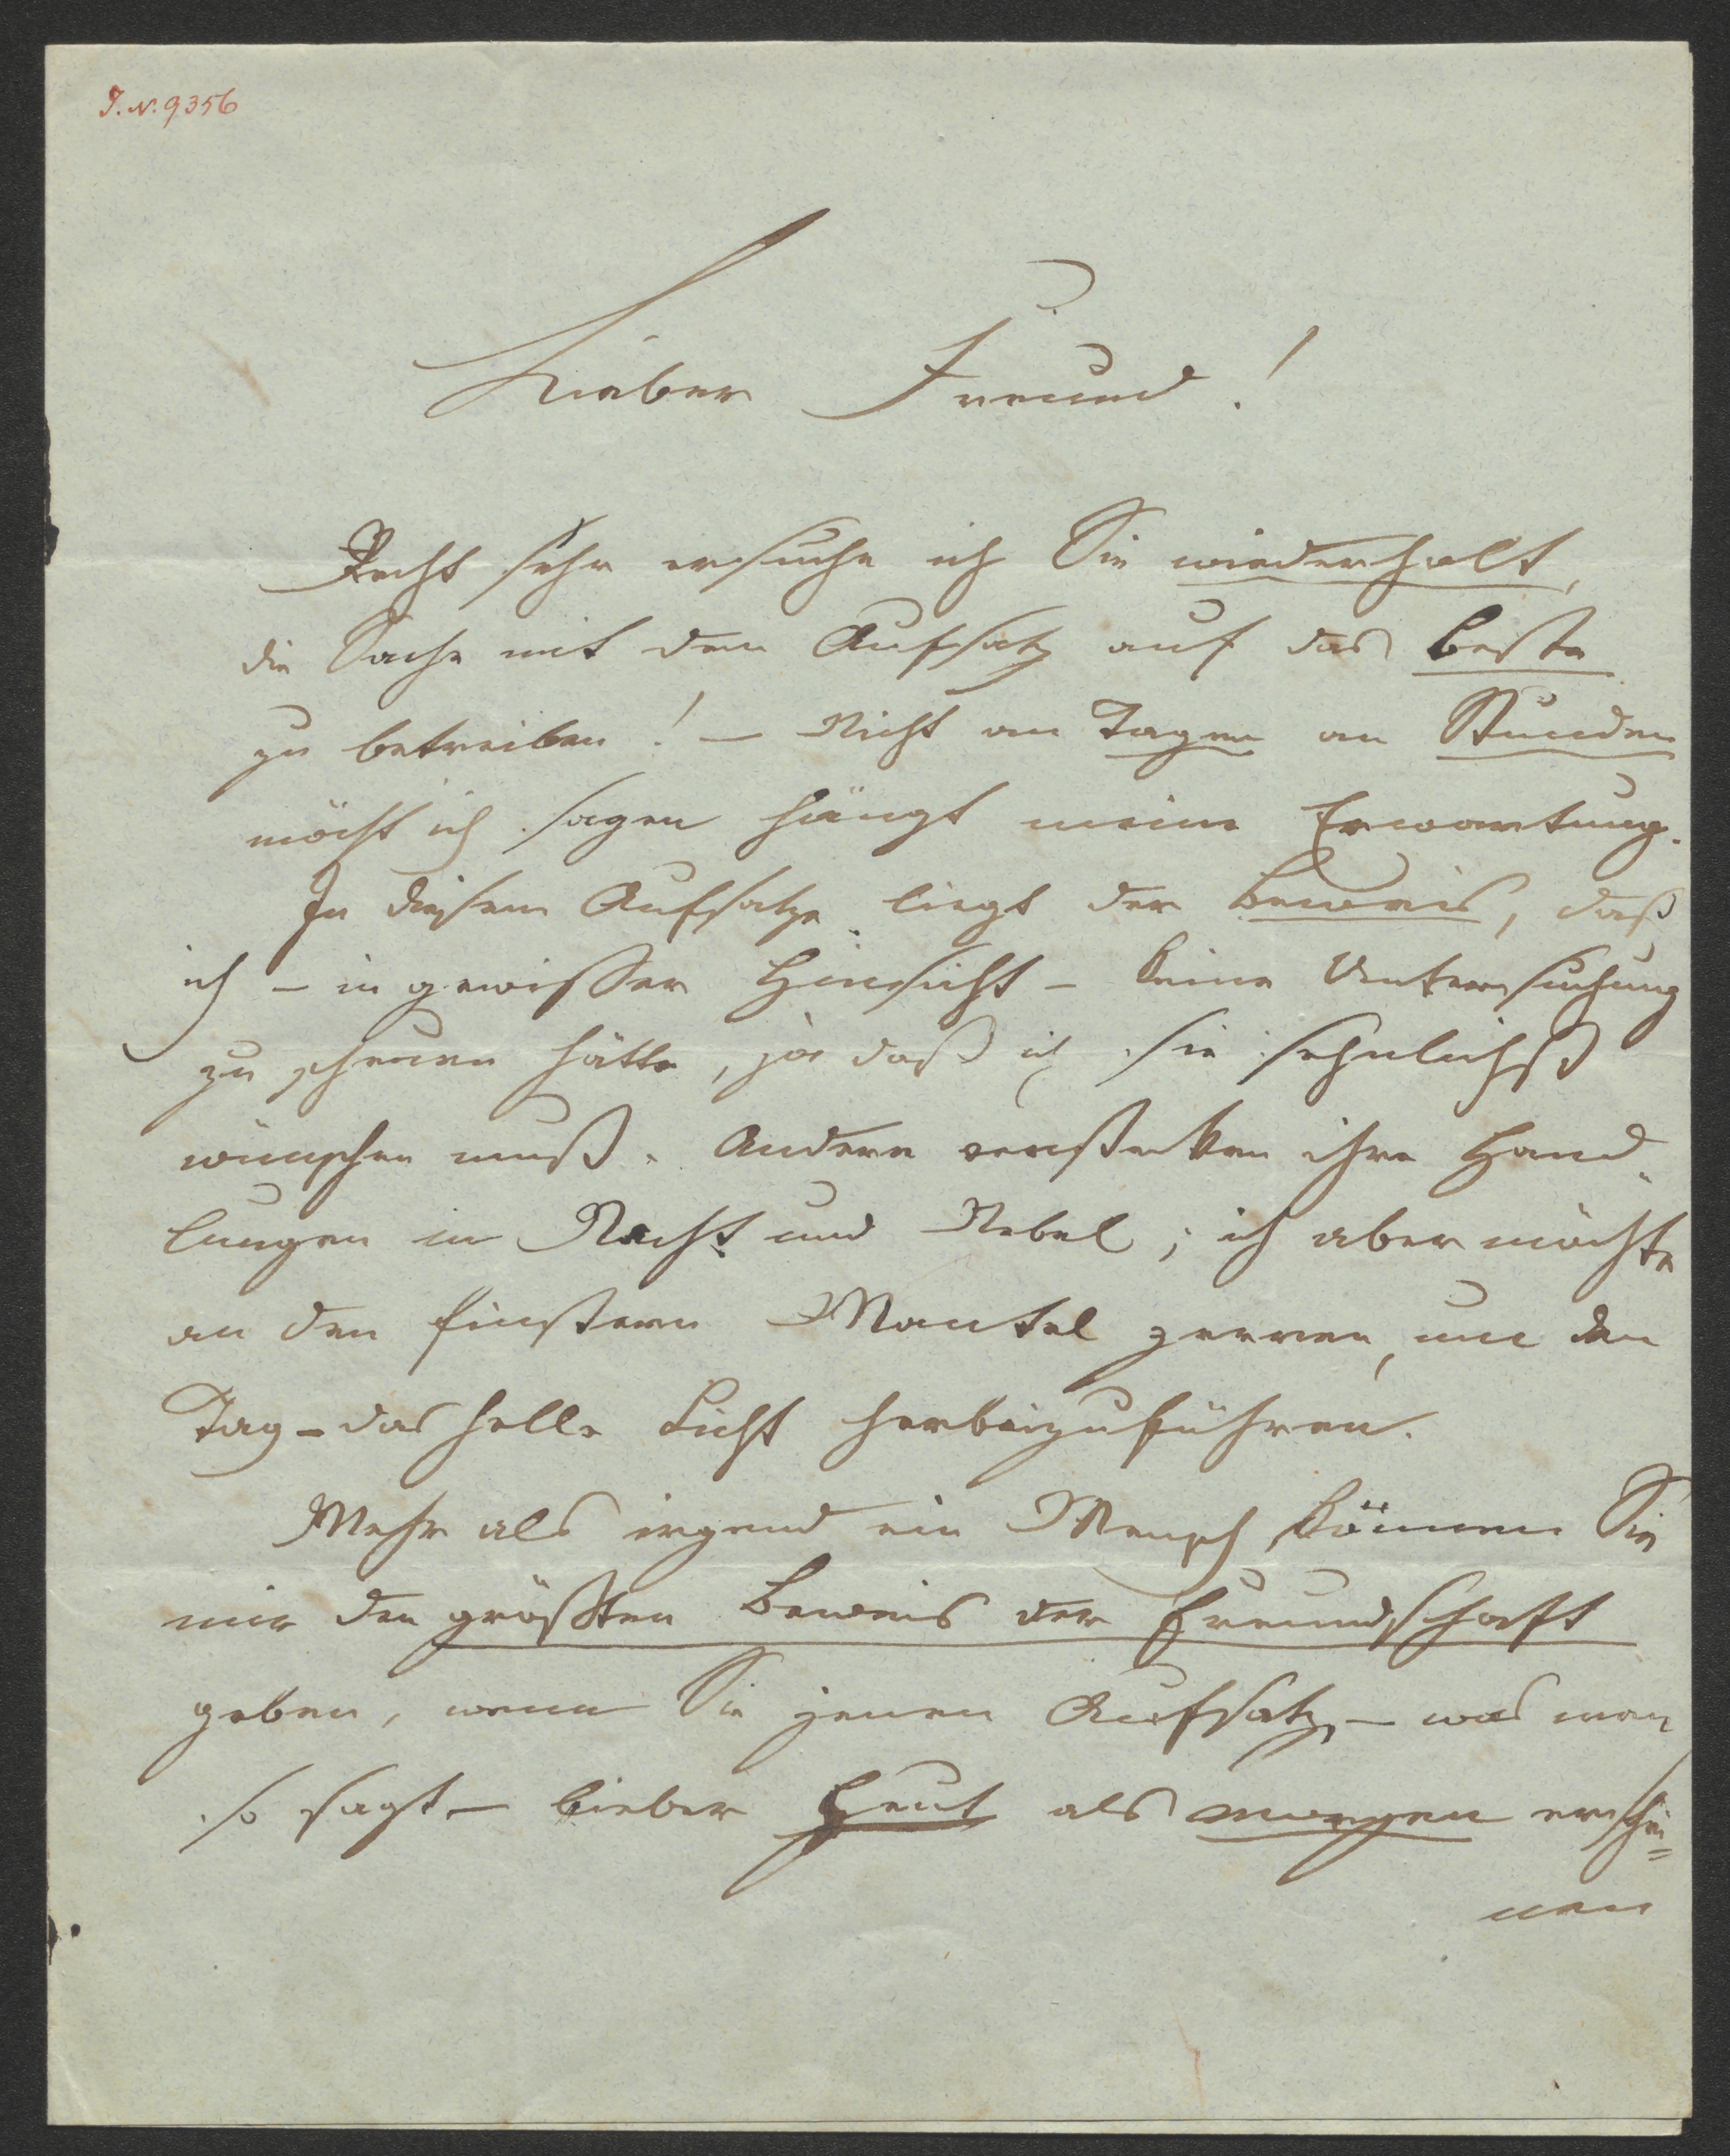 I. N. 9356
Lieber Freund!
Recht sehr ersuche ich Sie wiederholt,
die Sache mit dem Aufsatz auf das beste
zu betreiben! – Nicht an Tagen an Stunden
möcht ich sagen hängt meine Erwartung.
In diesem Aufsatze liegt der Beweis, daß
ich – in gewisser Hinsicht – keine Untersuchung
zu scheuen hätte, ja daß ich sie sehnlichst
wünschen muß. Andere verstecken ihre Hand-
lungen in Nacht und Nebel; ich aber möchte
an den finstern Mantel zerren, um den
Tag – das helle Licht herbeizuführen.
Mehr als irgend ein Mensch können Sie
mir den größten Beweis der Freundschaft
geben, wenn Sie jenen Aufsatz, – was man
so sagt – lieber Heut als morgen erschei=
nen